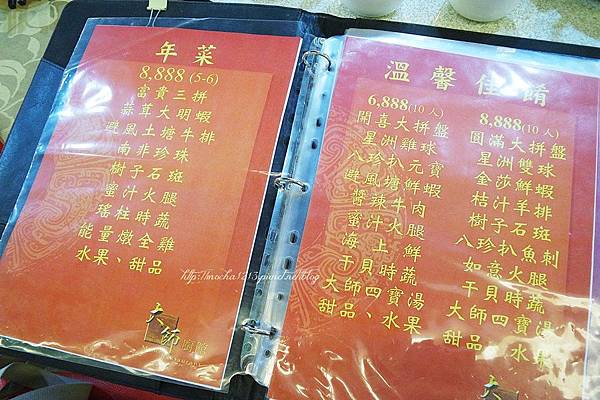 年菜
8,888 (5-6)
富貴三拼
蒜茸大明蝦
避風土塘牛排
南非珍珠
樹子石斑
蜜汁火腿
瑤柱時蔬
能量燉全雞
水果、甜品
大師
溫馨佳餚
6,888(10人)
開喜大拼盤
星洲雞球
八珍扒元寶
避風塘鮮蝦
醬辣牛肉
蜜汁火腿
海上鮮
干貝時蔬
大師四寶湯
甜品、水果
8,888(10人)
圓滿大拼盤
星洲雙球
金莎鮮蝦
桔汁羊排
樹子石斑
八珍扒魚刺
如意火腿
干貝時蔬
大師四寶湯
甜品、水果
大師